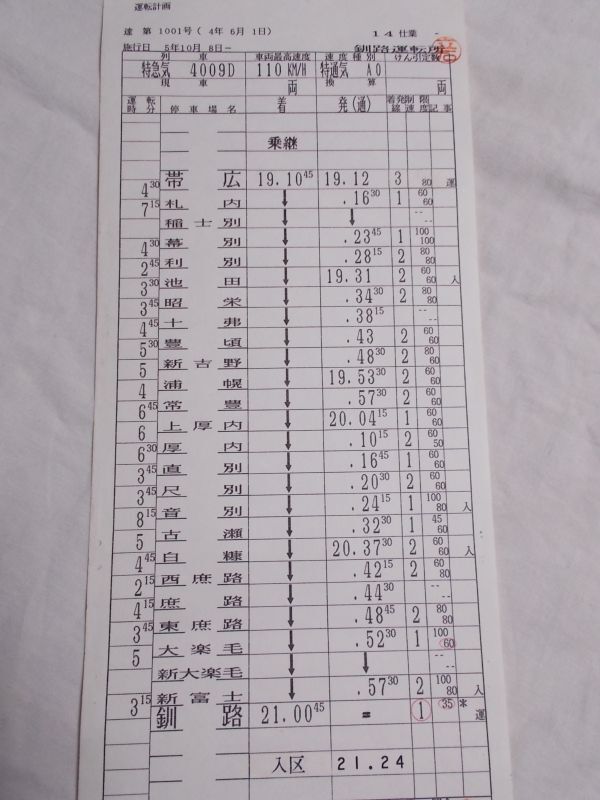 運転計画
達 第 1001号 ( 4年 6月 1日) 14 仕業 -
施行日 5年10月 8日- 釧路運転所
列車 車両最高速度 速度種別 けん引定数
特急気 4009D 110KM/H 特通気 A0
現車 両 換算 両
運転時分 停車場名 着 発(通) 着発線 制限速度 記事
乗継
帯広 19.10 45 19.12 3 80 運
4 30 札内 ↓ .16 30 1 60 60
7 15 稲士別 ↓ ↓ -- --
幕別 ↓ .23 45 1 100 100
4 30 利別 ↓ .28 15 2 80 80
2 45 池田 ↓ 19.31 2 60 60 入
3 30 昭栄 ↓ .34 30 2 80 80
3 45 十弗 ↓ .38 15 -- --
4 45 豊頃 ↓ .43 2 60 60
5 30 新吉野 ↓ .48 30 2 80 60
5 浦幌 ↓ 19.53 30 2 60 60
4 常豊 ↓ .57 30 2 60 60
6 45 上厚内 ↓ 20.04 15 1 60 60
6 厚内 ↓ .10 15 2 60 50
6 30 直別 ↓ .16 45 1 60 60
3 45 尺別 ↓ .20 30 2 60 60
3 45 音別 ↓ .24 15 1 100 80 入
8 15 古瀬 ↓ .32 30 1 45 60
5 白糠 ↓ 20.37 30 2 60 60 入
4 45 西庶路 ↓ .42 15 2 60 80
2 15 庶路 ↓ .44 30 -- --
4 15 東庶路 ↓ .48 45 2 80 80
3 45 大楽毛 ↓ .52 30 1 100 60
5 新大楽毛 ↓ ↓ -- --
新富士 ↓ .57 30 2 100 80 入
3 15 釧路 21.00 45 = 1 35 * 運
入区 21.24